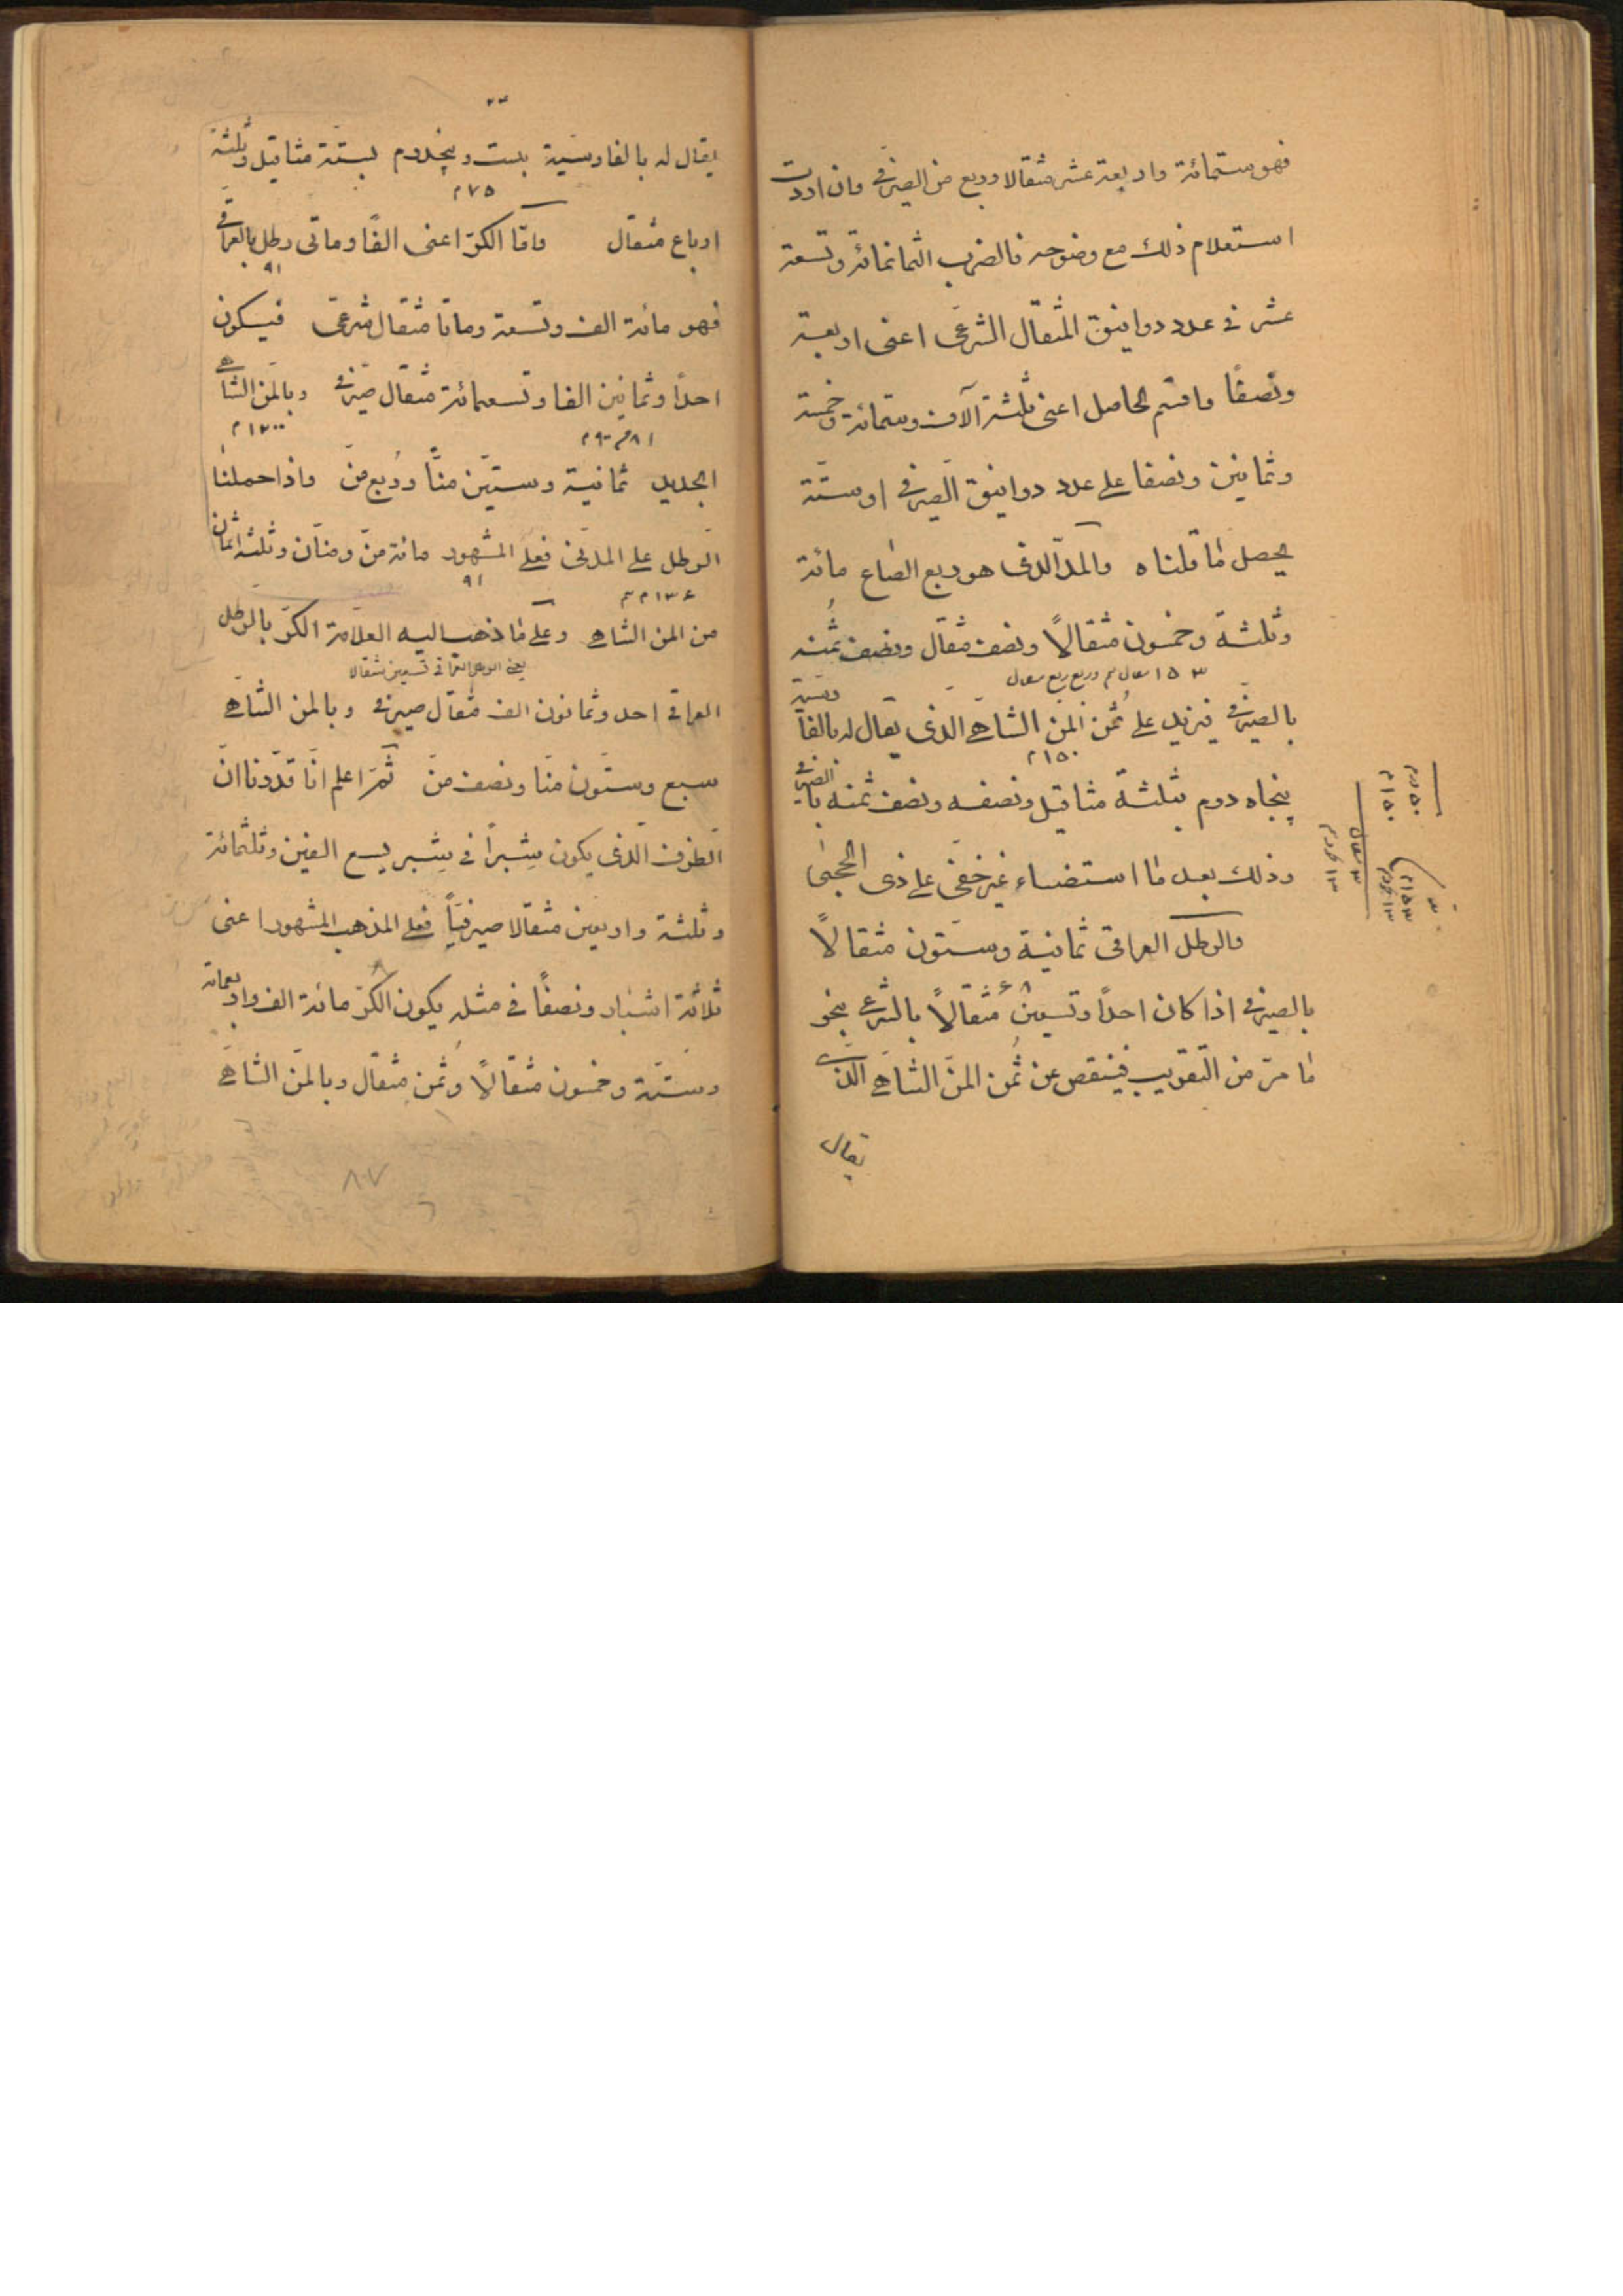 فهو ستمائة واربعة عشر مثقالا وربع من الصيرفی وان اردت
استعلام ذلك مع وضوحه فالضرب الثمانمائة وتسعة
عشر فی عدد دوانيق المثقال الشرعی اعنی اربعة
ونصفًا واقسم الحاصل اعنی ثلثة آلاف وستمائة وخمسة
وثمانين ونصفا علی عدد دوانيق الصيرفی او ستّة
يحصل ما قلناه والمدّ الذی هو ربع الصاع مائة
وثلثة وخمسون مثقالًا ونصف مثقال ونصف ثُمنه
۱۵۳
بالصيرفی فيزيد علی ثُمن المنّ الشاهی الذی يقال له بالفارسية
۱۵۰م
پنجاه درم بثلثة مثاقيل ونصفه ونصف ثمنه بالصيرفی
وذلك بعد ما استضاء غير خفیّ علی ذی الحجی
والرطل العراقی ثمانية وستّون مثقالًا
بالصيرفی اذا كان احدًا وتسعين مثقالًا بالشرعی بنحو
ما مرّ من التقريب فينقص عن ثُمن المنّ الشاهی الذی
يقال
يقال له بالفارسيّة بيست وپنجدرم بستّة مثاقيل وثلثة
۷۵م
ارباع مثقال وامّا الكرّ اعنی الفًا وماتی رطل بالعراقی
۹۱
فهو مائة الف وتسعة وماتا مثقال شرعیّ فيكون
احدًا وثمانين الفا وتسعمائة مثقال صيرفی وبالمنّ الشاهی
۱۲۰۰م
۸۱۹۰۰م
الجديد ثمانية وستّين منًّا ورُبع منّ واذا حملنا
الرطل علی المدنیّ فعلی المشهور مائة منّ ومنّان وثلثة اثمان
۹۱
من المن الشاهی وعلی ما ذهب اليه العلّامة الكرّ بالرطل
يعنی الرطل العراقی تسعين مثقالا
العراقی احد وثمانون الف مثقال صيرفی وبالمن الشاهی
سبع وستّون منّا ونصف منّ ثمّ اعلم انّا قدّرنا انّ
الظرف الّذی يكون شِبراً فی شِبر يسع الفين وثلثمائة
وثلثة واربعين مثقالا صيرفيّاً فعلی المذهب المشهور اعنی
ثلاثة اشبار ونصفًا فی مثله يكون الكرّ مائة الف واربعمائة
وستّة وخمسون مثقالًا وثمن مثقال وبالمنّ الشاهی
۸۰۷